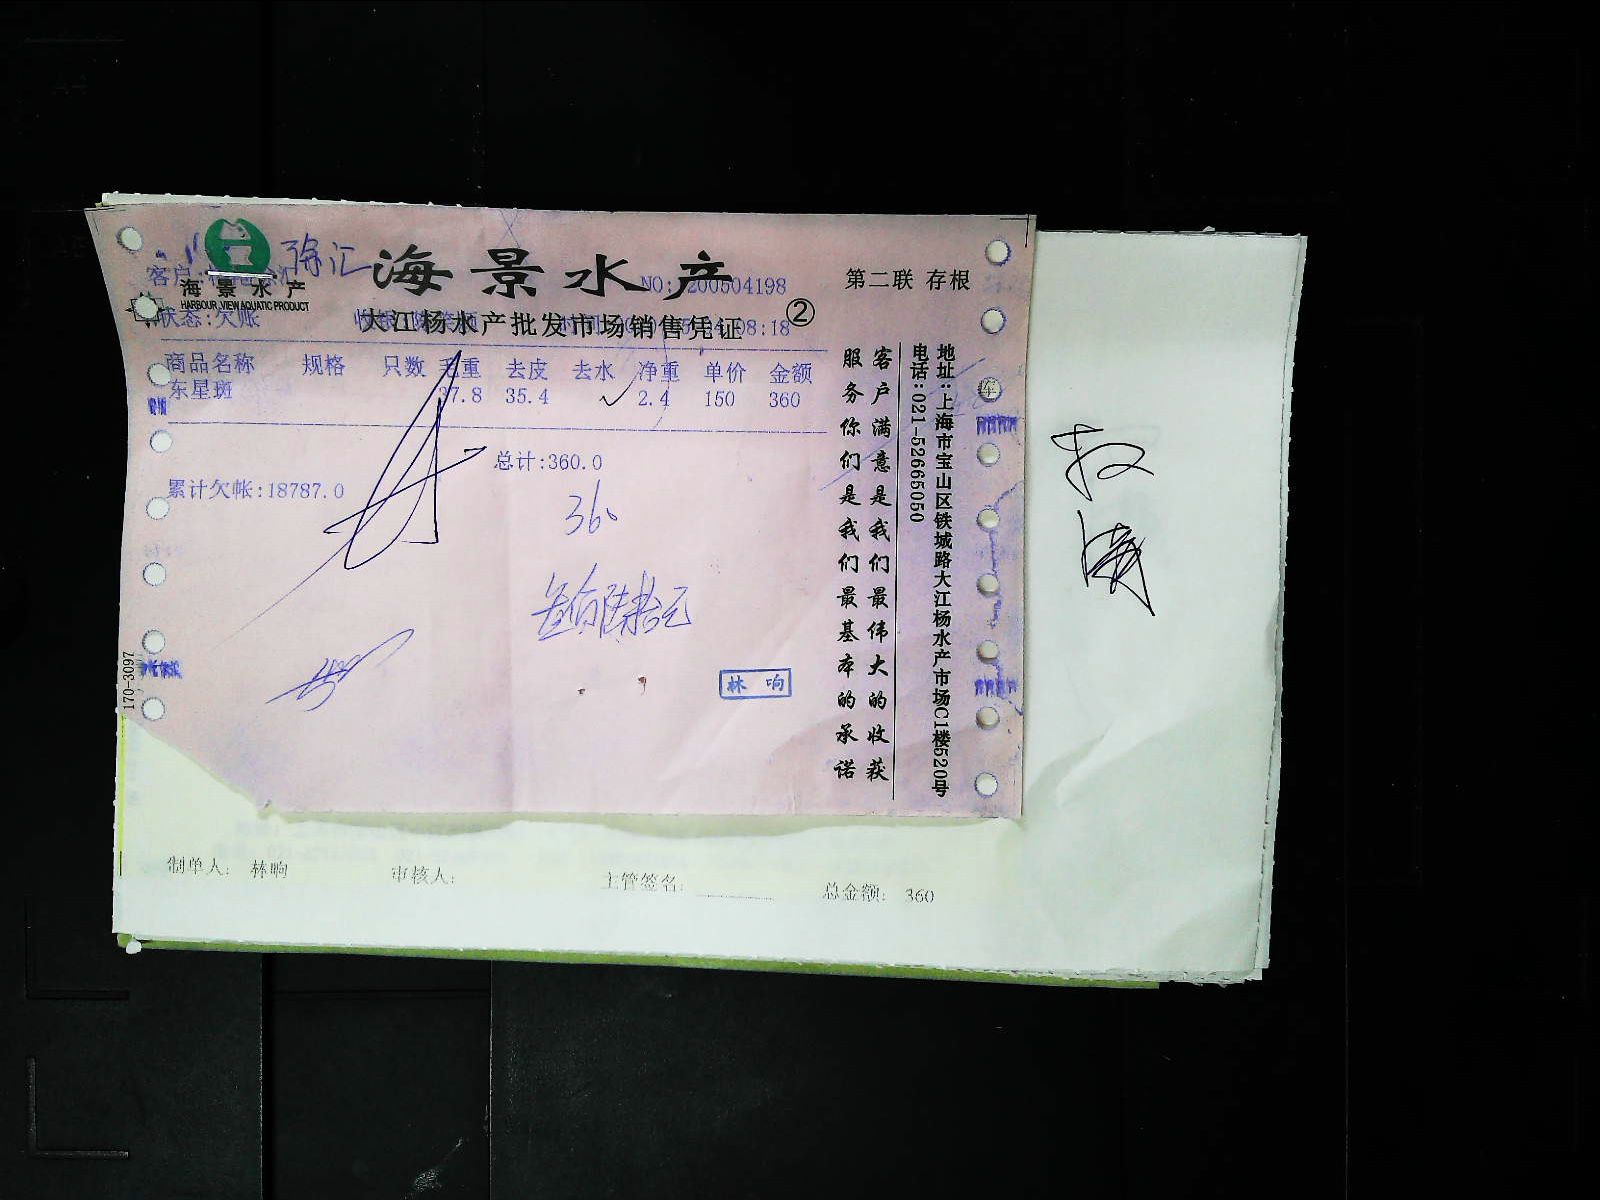 徐汇
海景水产
HARBOUR VIEW AQUATIC PRODUCT
海景水产
NO: 200504198
第二联 存根
客户:
状态:欠账
大江杨水产批发市场销售凭证
②
08:18
商品名称 规格 只数 毛重 去皮 去水 净重 单价 金额
东星斑 37.8 35.4 2.4 150 360
总计:360.0
累计欠帐:18787.0
360
叁佰陆拾元
林响
170-3097
客户满意是我们最伟大的收获
服务你们是我们最基本的承诺
地址:上海市宝山区铁城路大江杨水产市场C1楼520号
电话:021-52665050
制单人: 林响 审核人: 主管签名: 总金额: 360